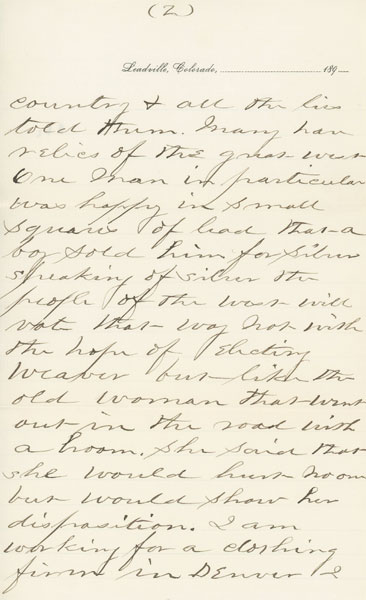 (2)
Leadville, Colorado, 189
country & all the lies
told them. Many have
relics of the great west
One man in particular
was happy in small
squares of lead that a
boy sold him for silver
speaking of silver the
people of the west will
vote that way not with
the hope of electing
Weaver but like the
old woman that went
out in the road with
a broom. She said that
she would hurt noone
but would show her
disposition. I am
working for a clothing
firm in Denver I